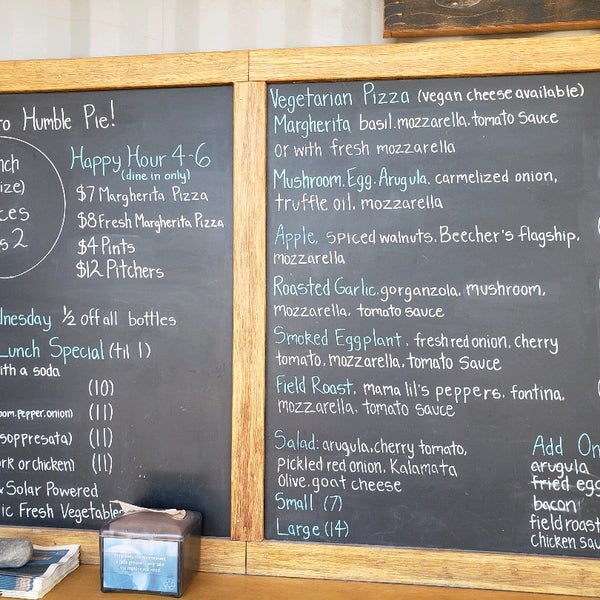 to Humble Pie!
Happy Hour 4-6
(dine in only)
$7 Margherita Pizza
$8 Fresh Margherita Pizza
$4 Pints
$12 Pitchers
nch
ize)
ces
s 2
nesday ½ off all bottles
Lunch Special (til 1)
ith a soda
(10)
oom, pepper, onion) (11)
soppresata) (11)
ork or chicken) (11)
& Solar Powered
ic Fresh Vegetables
Vegetarian Pizza (vegan cheese available)
Margherita basil, mozzarella, tomato sauce
or with fresh mozzarella
Mushroom, Egg, Arugula, carmelized onion,
truffle oil, mozzarella
Apple, spiced walnuts, Beecher's flagship,
mozzarella
Roasted Garlic, gorganzola, mushroom,
mozzarella, tomato sauce
Smoked Eggplant, fresh red onion, cherry
tomato, mozzarella, tomato sauce
Field Roast, mama lil's peppers, fontina,
mozzarella, tomato sauce
Salad: arugula, cherry tomato,
pickled red onion, Kalamata
olive, goat cheese
Small (7)
Large (14)
Add On
arugula
fried egg
bacon
field roast
chicken sau